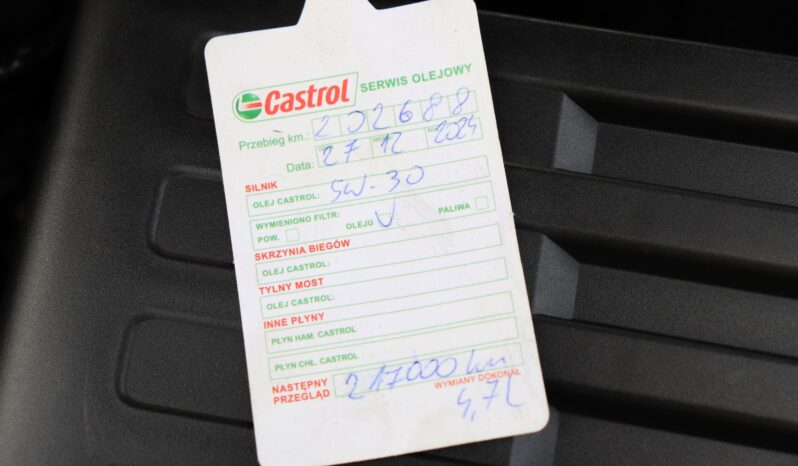 Castrol SERWIS OLEJOWY
Przebieg km.: 202688
Data: 27 12 2024
SILNIK
OLEJ CASTROL: 5W-30
WYMIENIONO FILTR:
POW. OLEJU V PALIWA
SKRZYNIA BIEGÓW
OLEJ CASTROL:
TYLNY MOST
OLEJ CASTROL:
INNE PŁYNY
PŁYN HAM. CASTROL
PŁYN CHŁ. CASTROL
NASTĘPNY PRZEGLĄD 217000 km
WYMIANY DOKONAŁ
4,7L